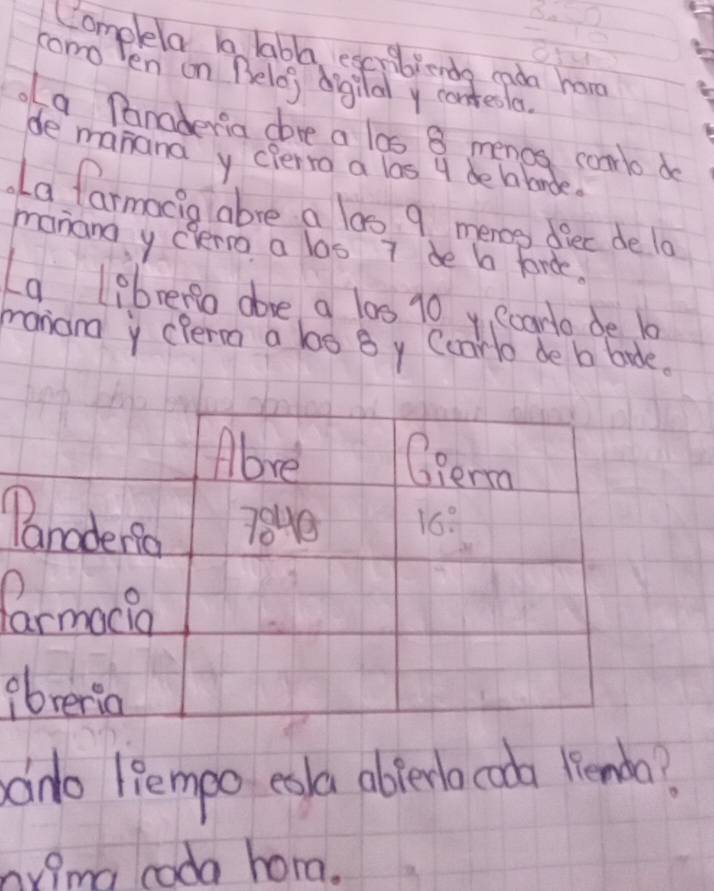 Completa la tabla, escribiendo cada hora
como en un Reloj digital y contesta.
• La Panaderia abre a las 8 menos cuarto de
de mañana y cierra a las 4 de la tarde.
• La farmacia abre a las 9 menos diez de la
mañana y cierra a las 7 de la tarde.
La libreria abre a las 10 y cuarto de la
mañana y cierra a las 8 y cuarto de la tarde.
Abre Cierra
Panaderia 16:
farmacia
ibreria
uánto tiempo esta abierta cada tienda?
oxima cada hora.